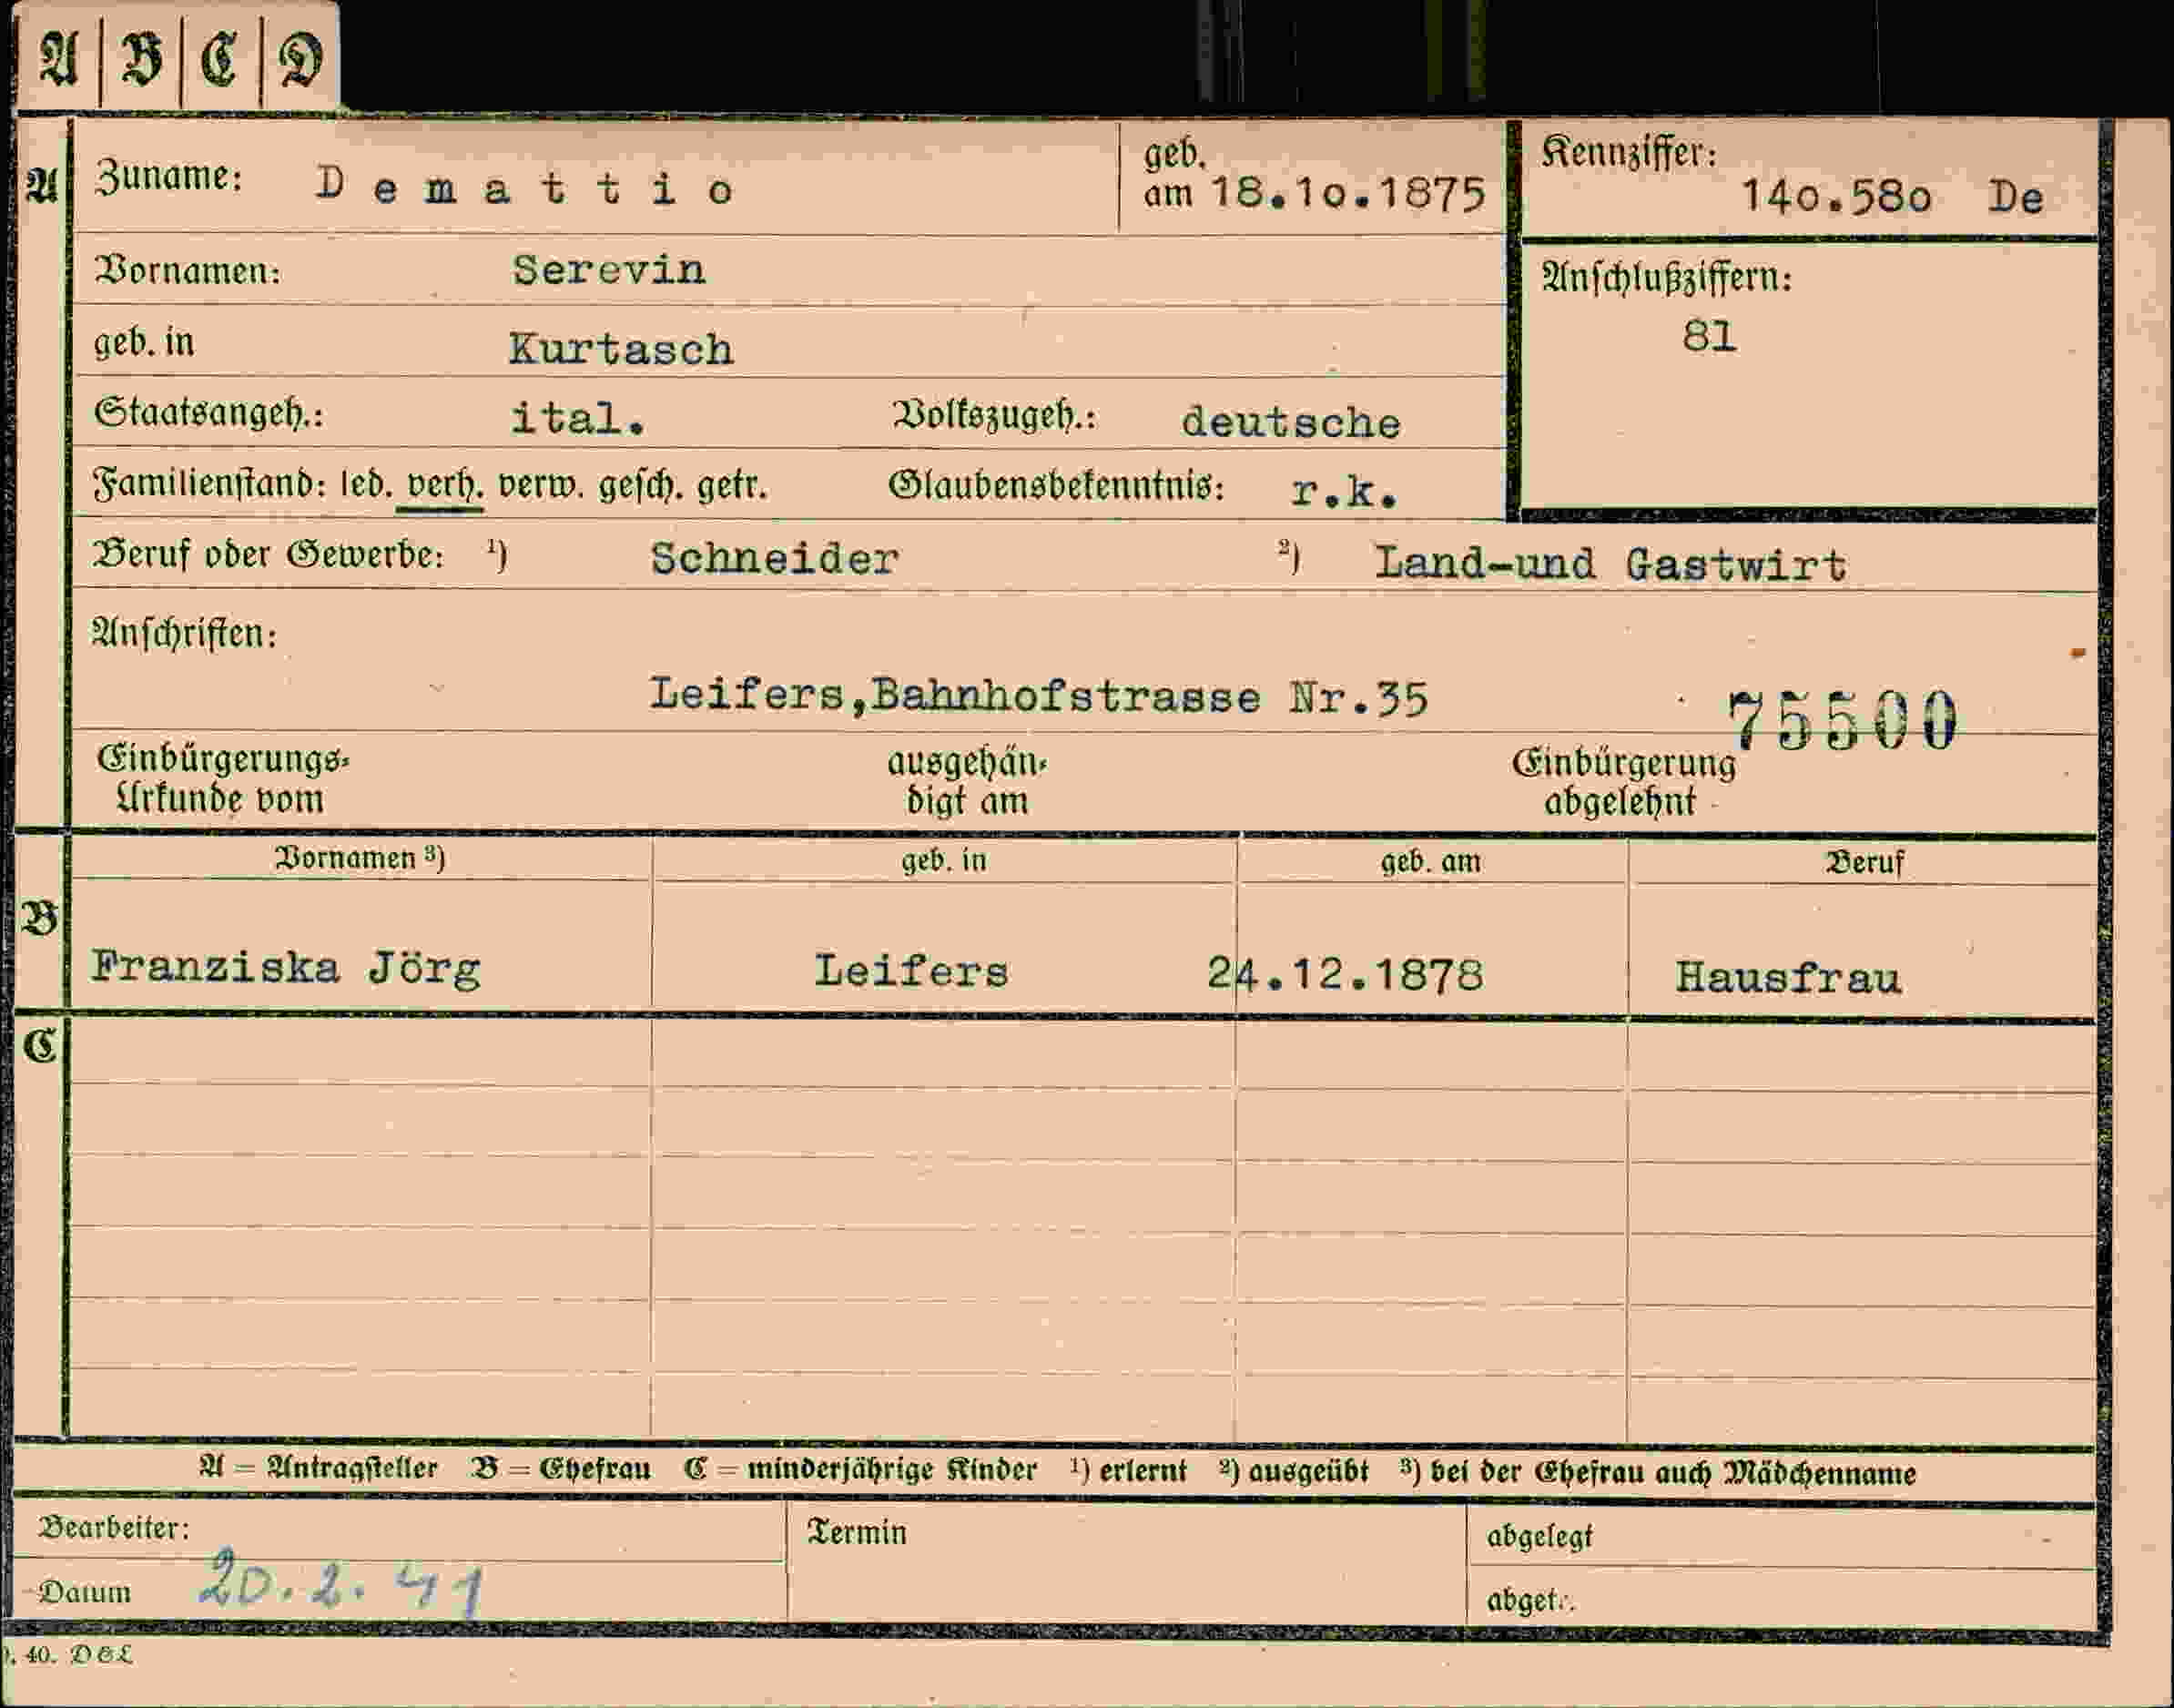 A B C D
A Zuname: Demattio geb. am 18.10.1875 Kennziffer: 140.580 De
Vornamen: Serevin
Anschlußziffern:
81
geb. in Kurtasch
Staatsangeh.: ital. Volkszugeh.: deutsche
Familienstand: led. verh. verw. gesch. getr. Glaubensbekenntnis: r.k.
Beruf oder Gewerbe: ¹) Schneider ²) Land-und Gastwirt
Anschriften:
Leifers,Bahnhofstrasse Nr.35
75500
Einbürgerungs- ausgehän- Einbürgerung
Urkunde vom digt am abgelehnt
Vornamen ³) geb. in geb. am Beruf
B
Franziska Jörg Leifers 24.12.1878 Hausfrau
C
A = Antragsteller B = Ehefrau C = minderjährige Kinder ¹) erlernt ²) ausgeübt ³) bei der Ehefrau auch Mädchenname
Bearbeiter: Termin abgelegt
Datum 20.2.41 abget.
40. DEL